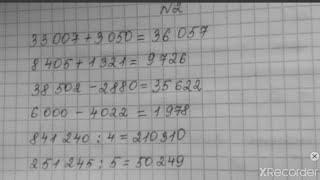 N2
33 007 + 3 050 = 36 057
8 405 + 1 321 = 9 726
38 502 - 2880 = 35 622
6 000 - 4022 = 1 978
841 240 : 4 = 210 310
251 245 : 5 = 50 249
XRecorder